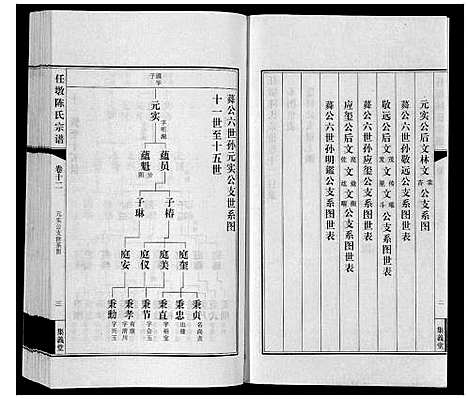 元实公后文林文
公支系图
蕣公六世孙敬远公支系图世表
敬远公后文
公支系图世表
蕣公六世孙应玺公支系图世表
应玺公后文
公支系图世表
蕣公六世孙明鑑公支系图世表
二
集义堂
蕣公六世孙元实公支世系图
十一世至十五世
元实
蕴员
蕴魁
子椿
子琳
庭奎
庭美
庭仪
庭安
秉贞
秉忠
秉直
秉节
秉孝
秉勳
任墩陈氏宗谱
卷十二
元实公支世系图
三
集义堂